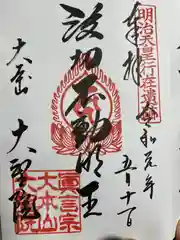 明治天皇行在遺蹟
奉拝
令和元年
五月十一日
波切不動明王
大本山 大聖院
眞言宗
大本山